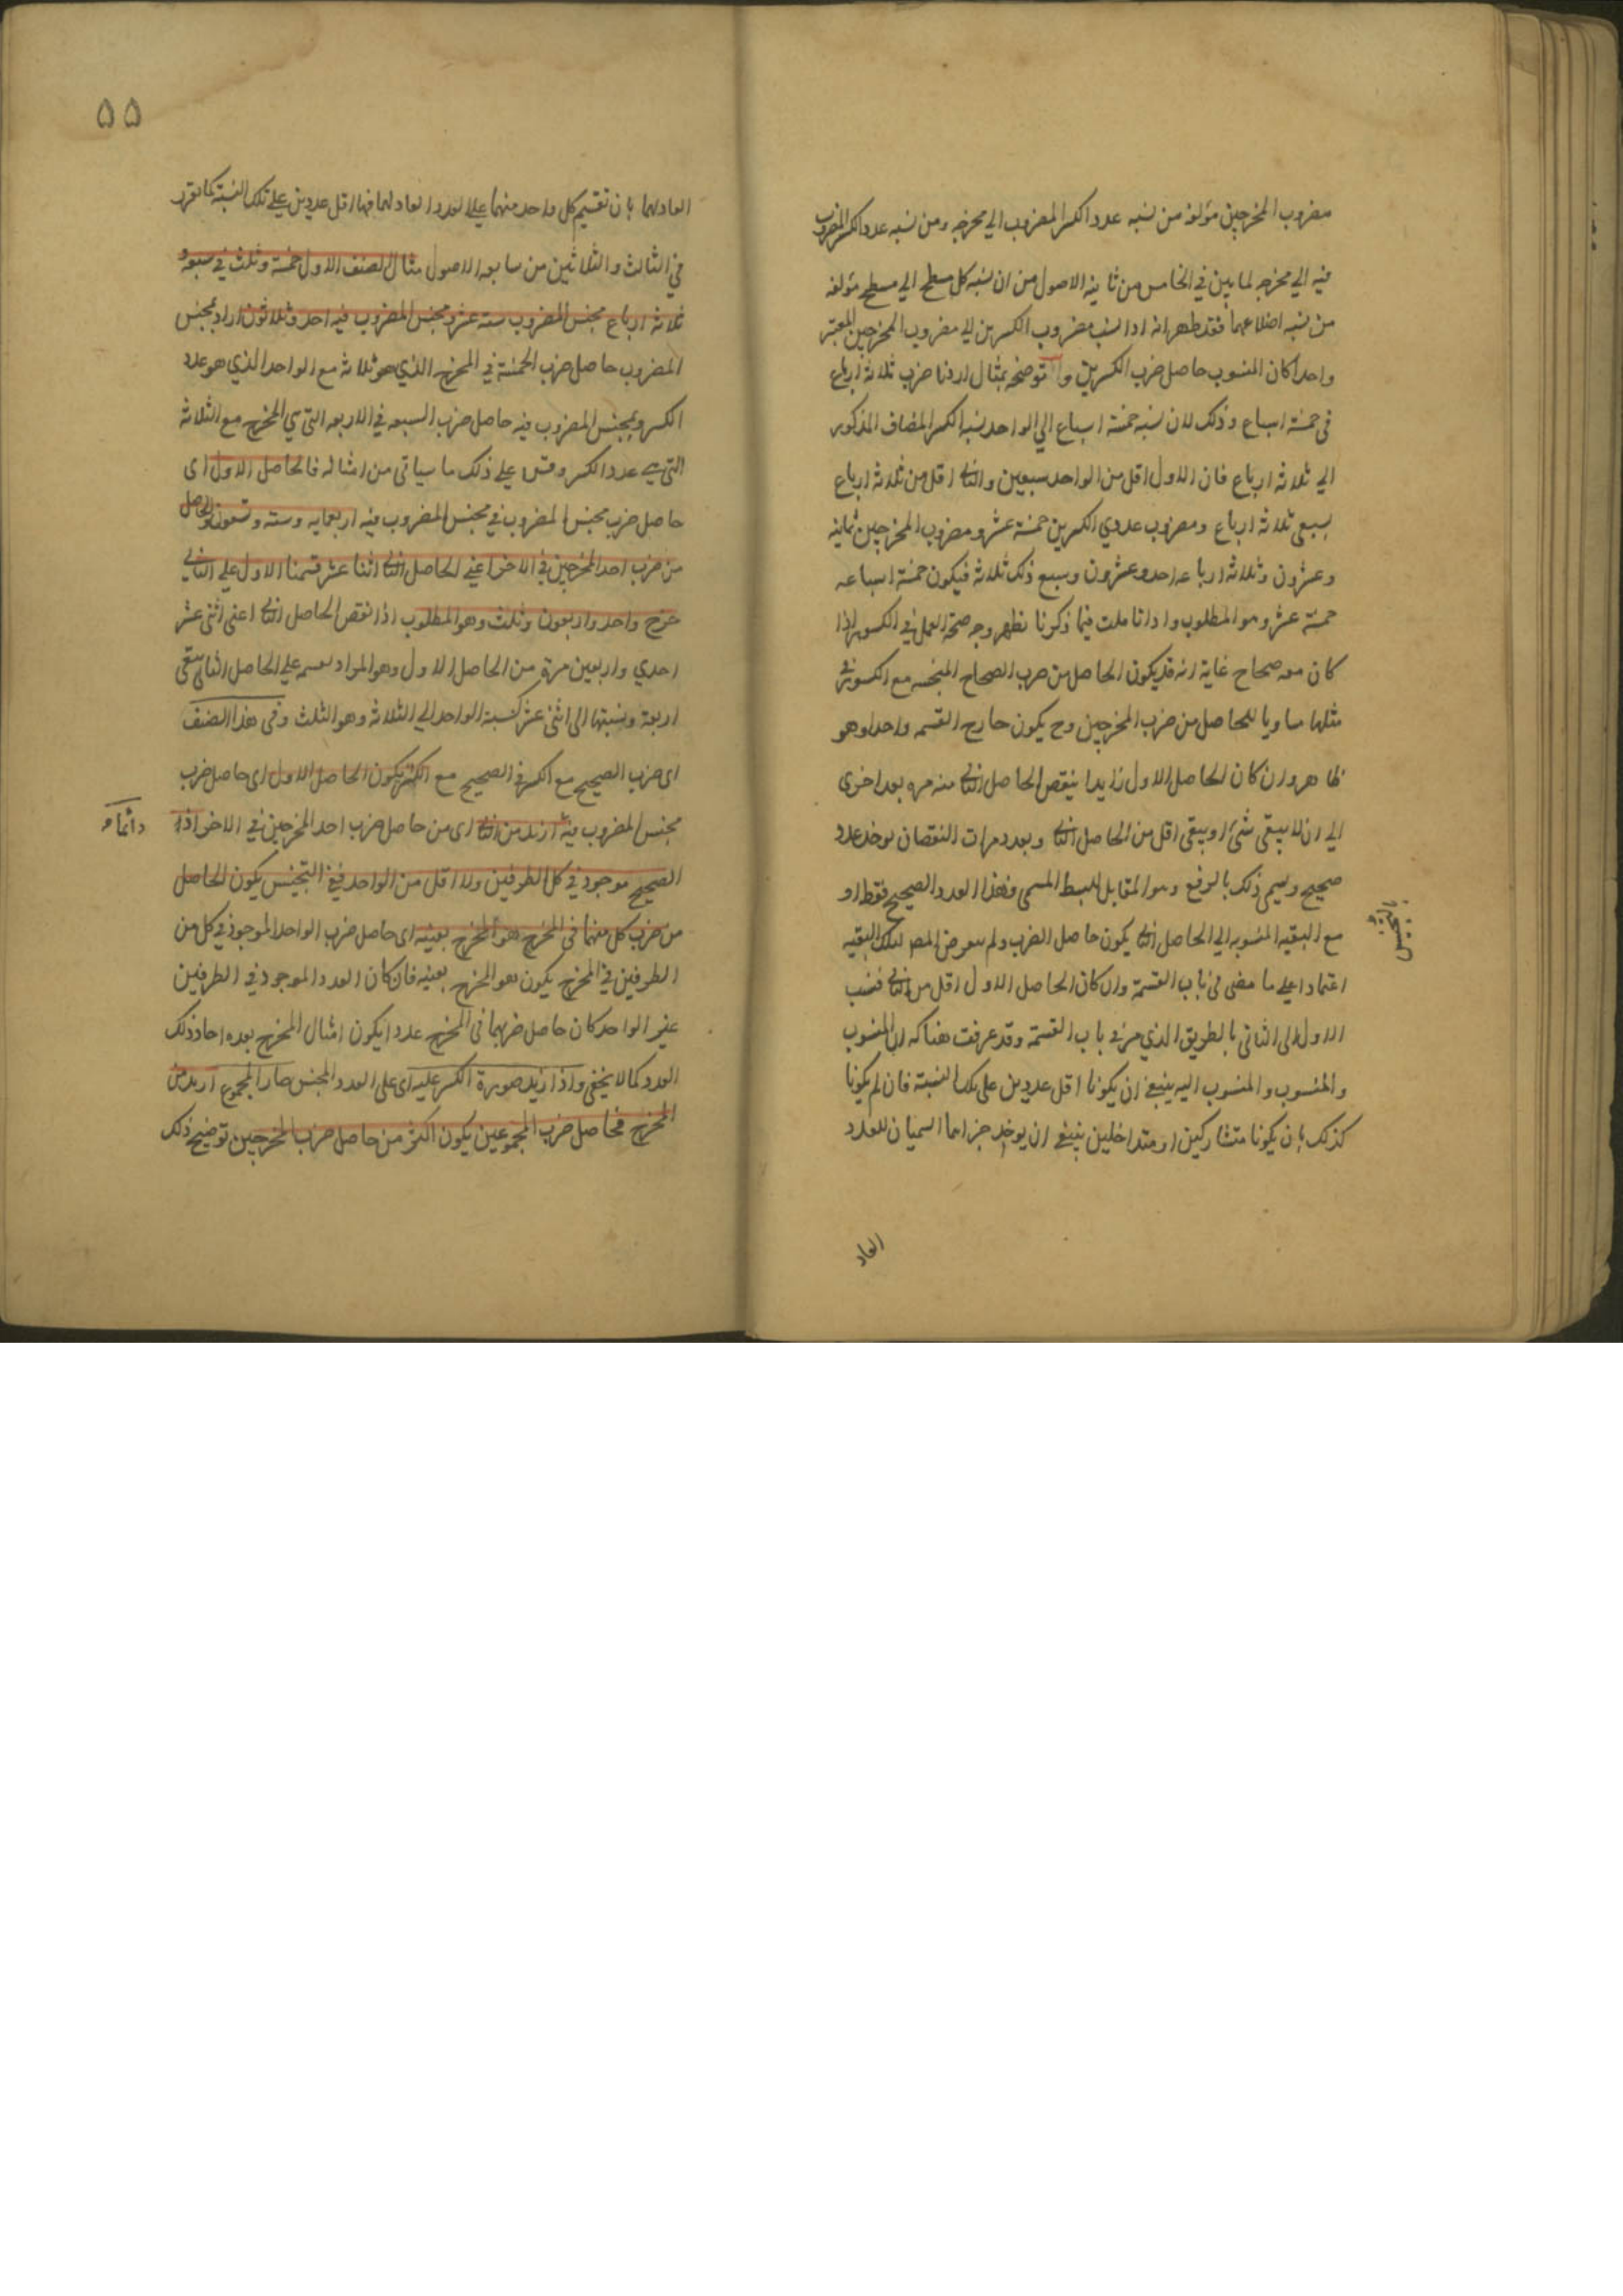 مضروب المخرجين مؤلفة من نسبه عدد الكسر المضروب الي مخرجه ومن نسبه عدد الكسر المضروب
فيه الي مخرجه لما بين في الخامس من ثامنة الاصول من ان نسبه كل مسطح الي مسطح مؤلفه
من نسبه اضلاعهما فقد ظهر انه اذا نسب مضروب الكسرين الي مضروب المخرجين المعتبر
واحدا كان المنسوب حاصل ضرب الكسرين و توضحه بمثال اردنا ضرب ثلاثة ارباع
في خمسة اسباع وذلك لان نسبه خمسة اسباع الي الواحد نسبه الكسر المضاف المذكور
الي ثلاثة ارباع فان الاول اقل من الواحد بسبعين والثاني اقل من ثلاثة ارباع
بسبعي ثلاثة ارباع ومضروب عددي الكسرين خمسة عشر ومضروب المخرجين ثمانيه
وعشرون وثلاثة ارباعه احد وعشرون وسبع ذلك ثلاثة فيكون خمسة اسباعه
خمسة عشر وهو المطلوب واذا تاملت فيما ذكرنا تظهر وجه صحة العمل في الكسور اذا
كان معه صحاح غاية انه قد يكون الحاصل من ضرب الصحاح المجنسه مع الكسور في
مثلها مساويا للحاصل من ضرب المخرجين وح يكون خارج القسمه واحدا وهو
ظاهر وان كان الحاصل الاول زايدا ينقص الحاصل الثاني منه مره بعد اخرى
الي ان لا يبقى شئ او يبقى اقل من الحاصل الثاني وبعدد مرات النقصان يوخذ عدد
صحيح ويسمى ذلك بالرفع وهو المقابل للبسط المسمى فهذا العدد الصحيح فقط او
مع البقيه المنسوبه الي الحاصل الثاني يكون حاصل الضرب ولم يتعرض المصر لتلك البقيه
بالتجنيس
اعتمادا على ما مضى في باب القسمة وان كان الحاصل الاول اقل من الثاني فنسب
الاول الى الثاني بالطريق الذي مر في باب القسمة وقد عرفت هناك ان المنسوب
والمنسوب والمنسوب اليه ينبغي ان يكونا اقل عددين على تلك النسبة فان لم يكونا
كذلك بان يكونا متشاركين او متداخلين ينبغي ان يوخذ جزاهما السميان للعدد
العاد
۵۵
العاد لهما بان تقسيم كل واحد منهما على العدد العاد لهما فهما اقل عددين على تلك النسبة كما تقرر
في الثالث والثلاثين من سابعة الاصول مثال الصنف الاول خمسة وثلث في سبعة و
ثلاثة ارباع مجنس المضروب ستة عشر ومجنس المضروب فيه احد وثلاثون اراد بمجنس
المضروب حاصل ضرب الخمسة في المخرج الذي هو ثلاثة مع الواحد الذي هو عدد
الكسر وبمجنس المضروب فيه حاصل ضرب السبعة في الاربعة التي هي المخرج مع الثلاثة
التي هي عدد الكسر وقس على ذلك ما سياتي من امثاله فالحاصل الاول اى
حاصل ضرب مجنس المضروب في مجنس المضروب فيه اربعمايه وسته وتسعون والحاصل
من ضرب احد المخرجين في الاخر اعني الحاصل الثاني اثنا عشر قسمنا الاول على الثاني
خرج واحد واربعون وثلث وهو المطلوب اذا نقص الحاصل الثاني اعنى اثنى عشر
احدي واربعين مرة من الحاصل الاول وهو المراد بقسمه على الحاصل الثاني يبقى
اربعة ونسبتها الى اثنى عشر كنسبة الواحد الي الثلاثة وهو الثلث وفى هذا الصنف
اى ضرب الصحيح مع الكسر في الصحيح مع الكسر يكون الحاصل الاول اى حاصل ضرب
مجنس المضروب فيه ازيد من الثاني اى من حاصل ضرب احد المخرجين في الاخر اذا
دائما
الصحيح موجود في كل الطرفين ولا اقل من الواحد ففي التجنيس يكون الحاصل
من ضرب كل منهما فى المخرج هو المخرج بعينه اى حاصل ضرب الواحد الموجود في كل من
الطرفين في المخرج يكون هو المخرج بعينه فان كان العدد الموجود في الطرفين
غير الواحد كان حاصل ضربهما فى المخرج عددا يكون امثال المخرج بعده احاد ذلك
العدد كما لا يخفى واذا زيد صورة الكسر عليه اى على العدد المجنس صار المجموع ازيد من
المخرج فحاصل ضرب المجموعين يكون اكثر من حاصل ضرب المخرجين توضيح ذلك